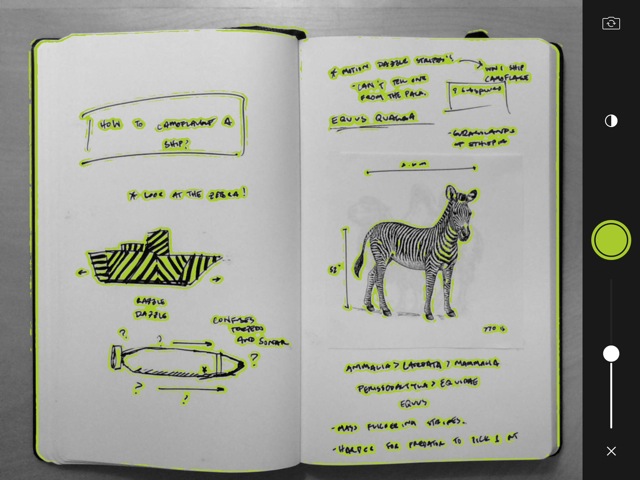 HOW TO CAMOFLAUGE A
SHIP?
* LOOK AT THE ZEBRA!
RAZZLE
DAZZLE
CONFUSES
TORPEDO
AND SONAR.
?
?
?
?
?
* MOTION DAZZLE STRIPES
WW1 SHIP
CAMOFLAGE
- CAN'T TELL ONE
FROM THE PACK.
EQUUS QUAGGA
- GRASSLANDS
OF ETHIOPIA
52"
ANIMALIA > CHORDATA > MAMMALIA
PERISSODACTYLA > EQUIDAE
EQUUS
- MASS FLICKERING STRIPES.
- HARDER FOR PREDATOR TO PICK 1 OUT